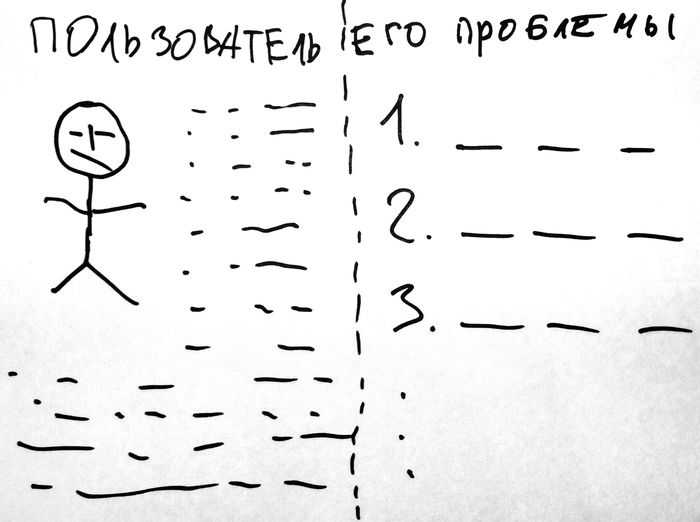 ПОЛЬЗОВАТЕЛЬ
ЕГО ПРОБЛЕМЫ
1.
2.
3.